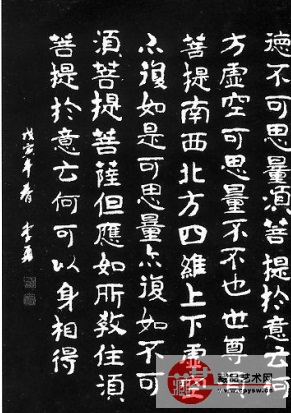 德不可思量須菩提於意云何
方虛空可思量不不也世尊
菩提南西北方四維上下虛
亦復如是可思量亦復如不可
須菩提菩薩但應如所教住須
菩提於意云何可以身相得
戊寅年春
藏品艺术网
www.cpysw.com